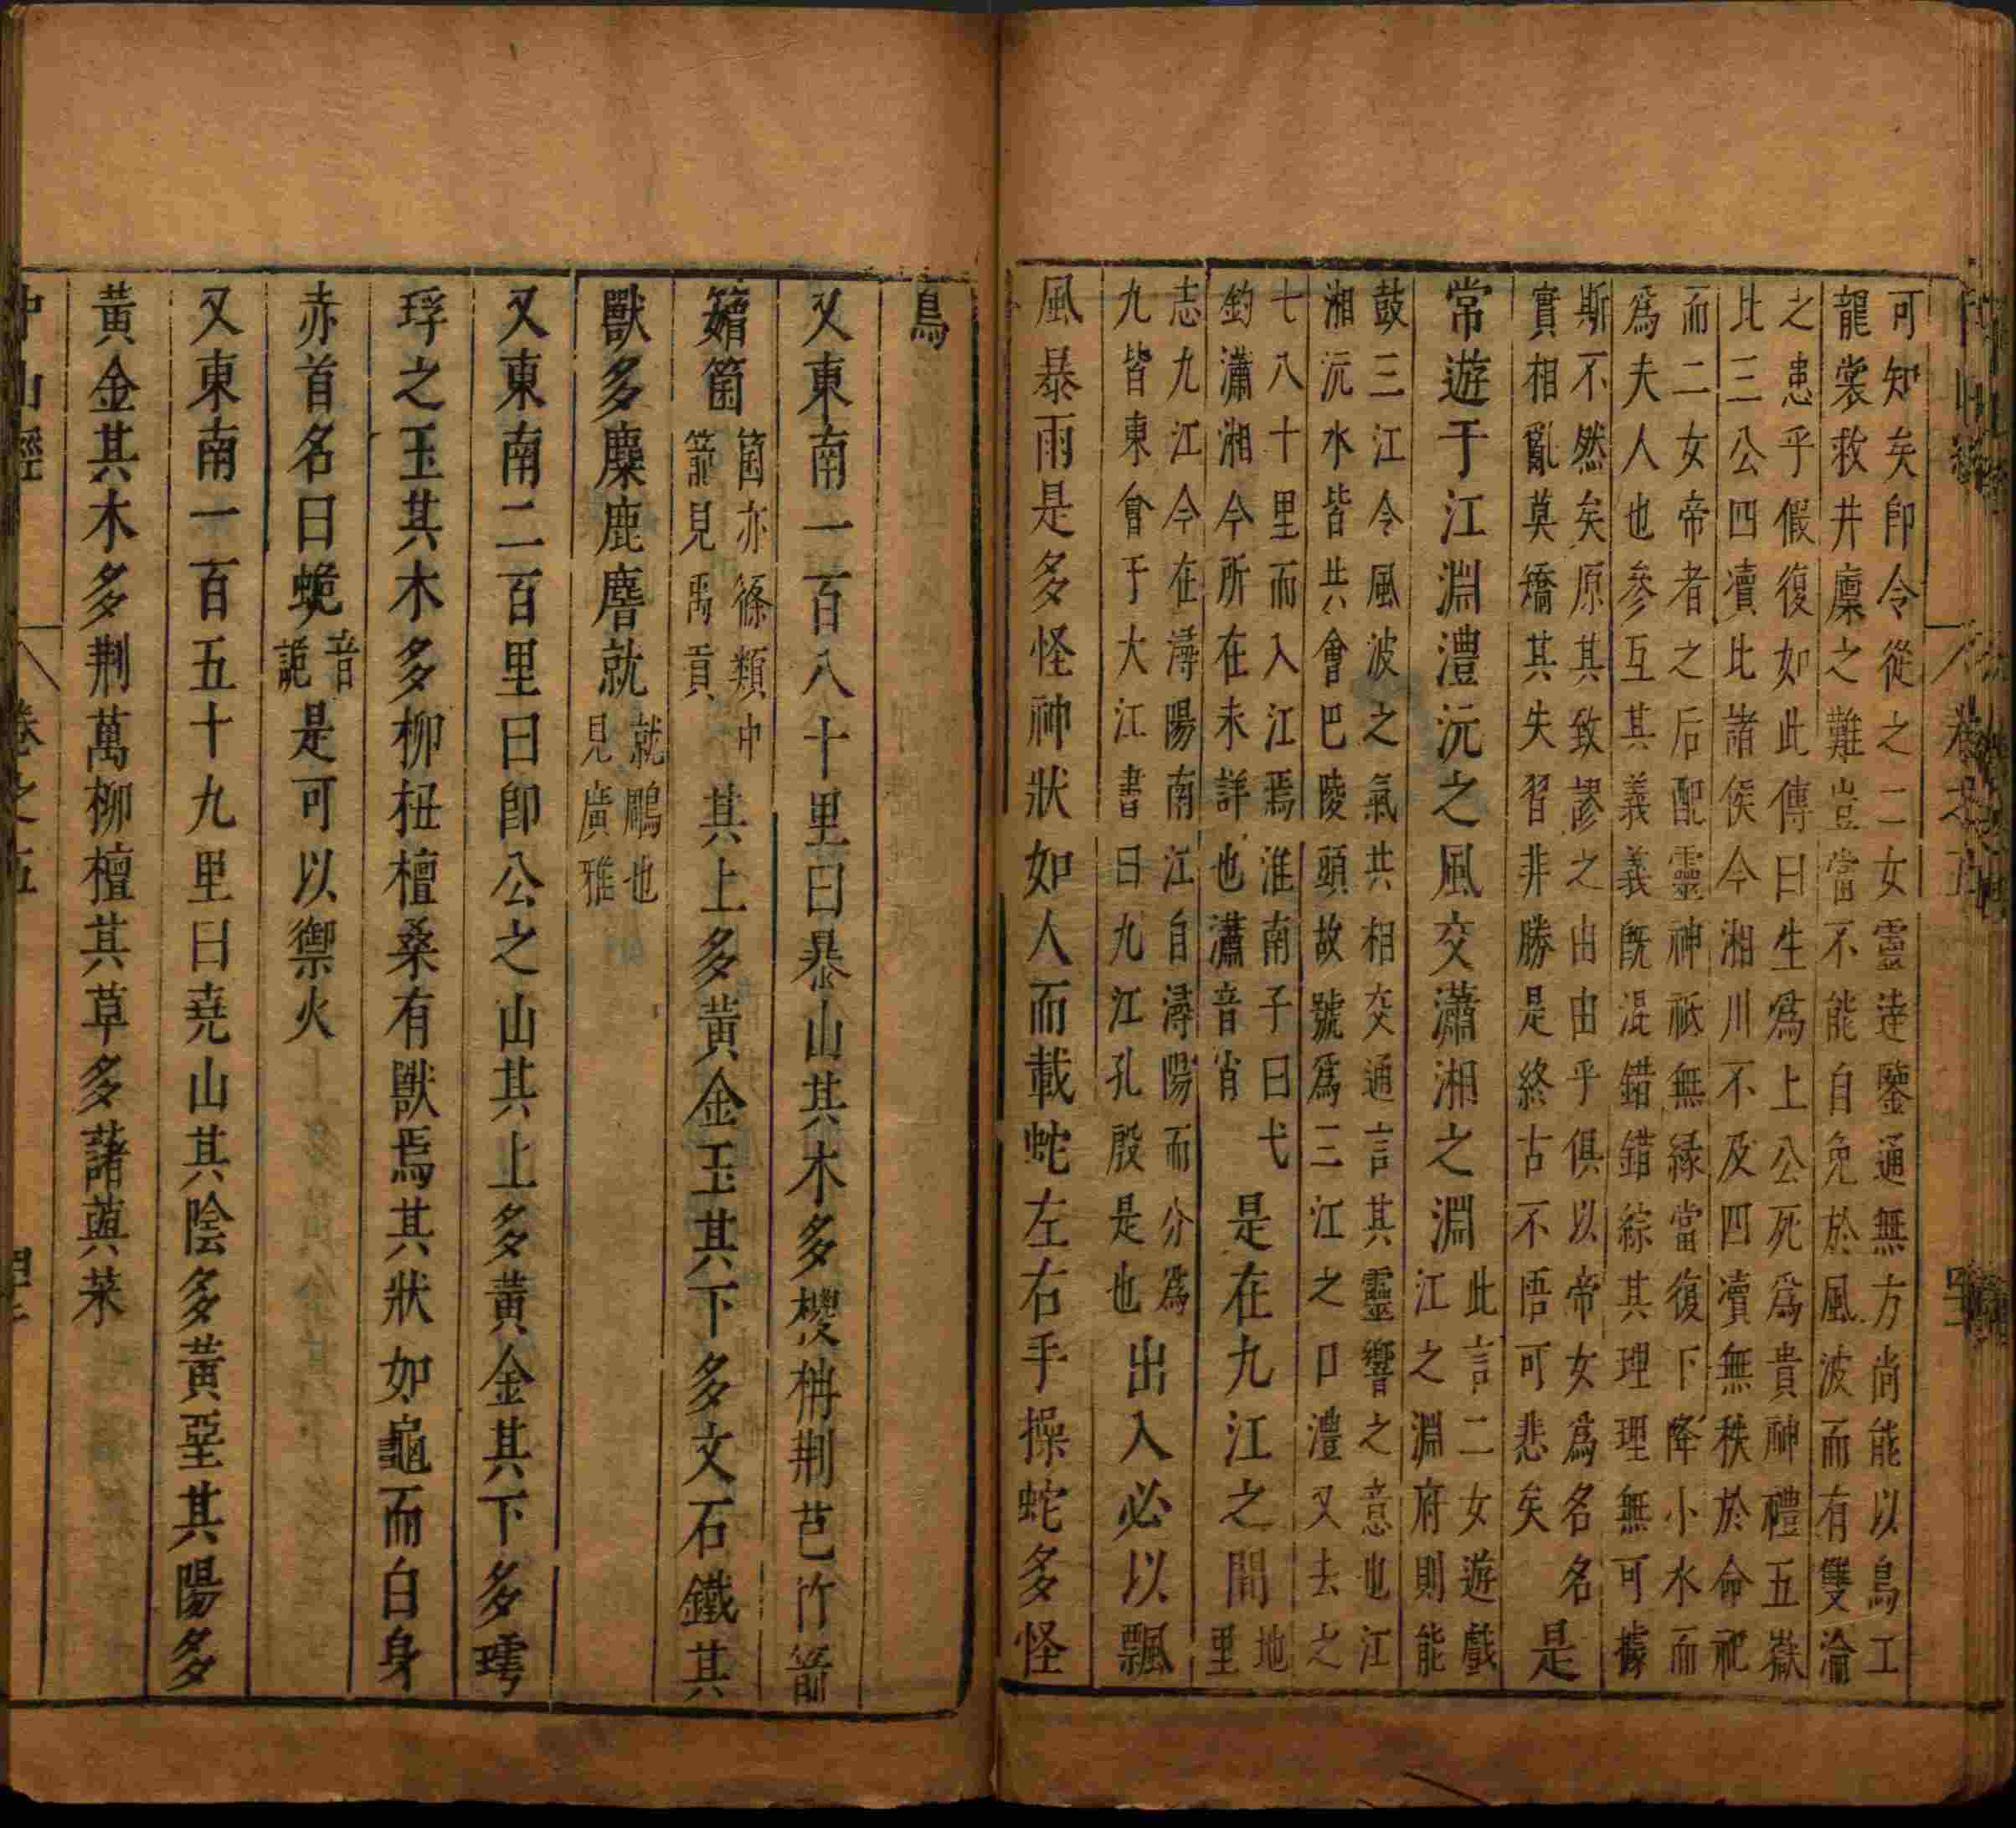 可知矣即令從之二女靈達鑒通無方尚能以鳥工
龍裳救井廩之難豈當不能自免於風波而有雙淪
之患乎假復如此傳曰生爲上公死爲貴神禮五嶽
比三公四瀆比諸侯今湘川不及四瀆無秩於命祀
而二女帝者之后配靈神祗無緣當復下降小水而
爲夫人也參互其義義旣混錯錯綜其理理無可據
斯不然矣原其致謬之由由乎俱以帝女爲名名
實相亂莫矯其失習非勝是終古不悟可悲矣
是
常遊于江淵澧沅之風交瀟湘之淵
此言二女遊戲
江之淵府則能
鼓三江令風波之氣共相交通言其靈響之意也江
湘沅水皆共會巴陵頭故號爲三江之口澧又去之
七八十里而入江焉淮南子曰弋
釣瀟湘今所在未詳也瀟音肖
是在九江之間
地
里
志九江今在潯陽南江自潯陽而分爲
九皆東會于大江書曰九江孔殷是也
出入必以飄
風暴雨是多怪神狀如人而載蛇左右手操蛇多怪
鳥
又東南一百八十里曰暴山其木多椶枏荆芑竹箭
䉋箘
箘亦篠類中
箭見禹貢
其上多黃金玉其下多文石鐵其
獸多麋鹿麐就
就鵰也
見廣雅
又東南二百里曰即公之山其上多黃金其下多㻬
琈之玉其木多柳杻檀桑有獸焉其狀如龜而白身
赤首名曰蛫
音
詭
是可以禦火
又東南一百五十九里曰堯山其陰多黃堊其陽多
黃金其木多荆萬柳檀其草多藷藇茶
中山經
卷之五